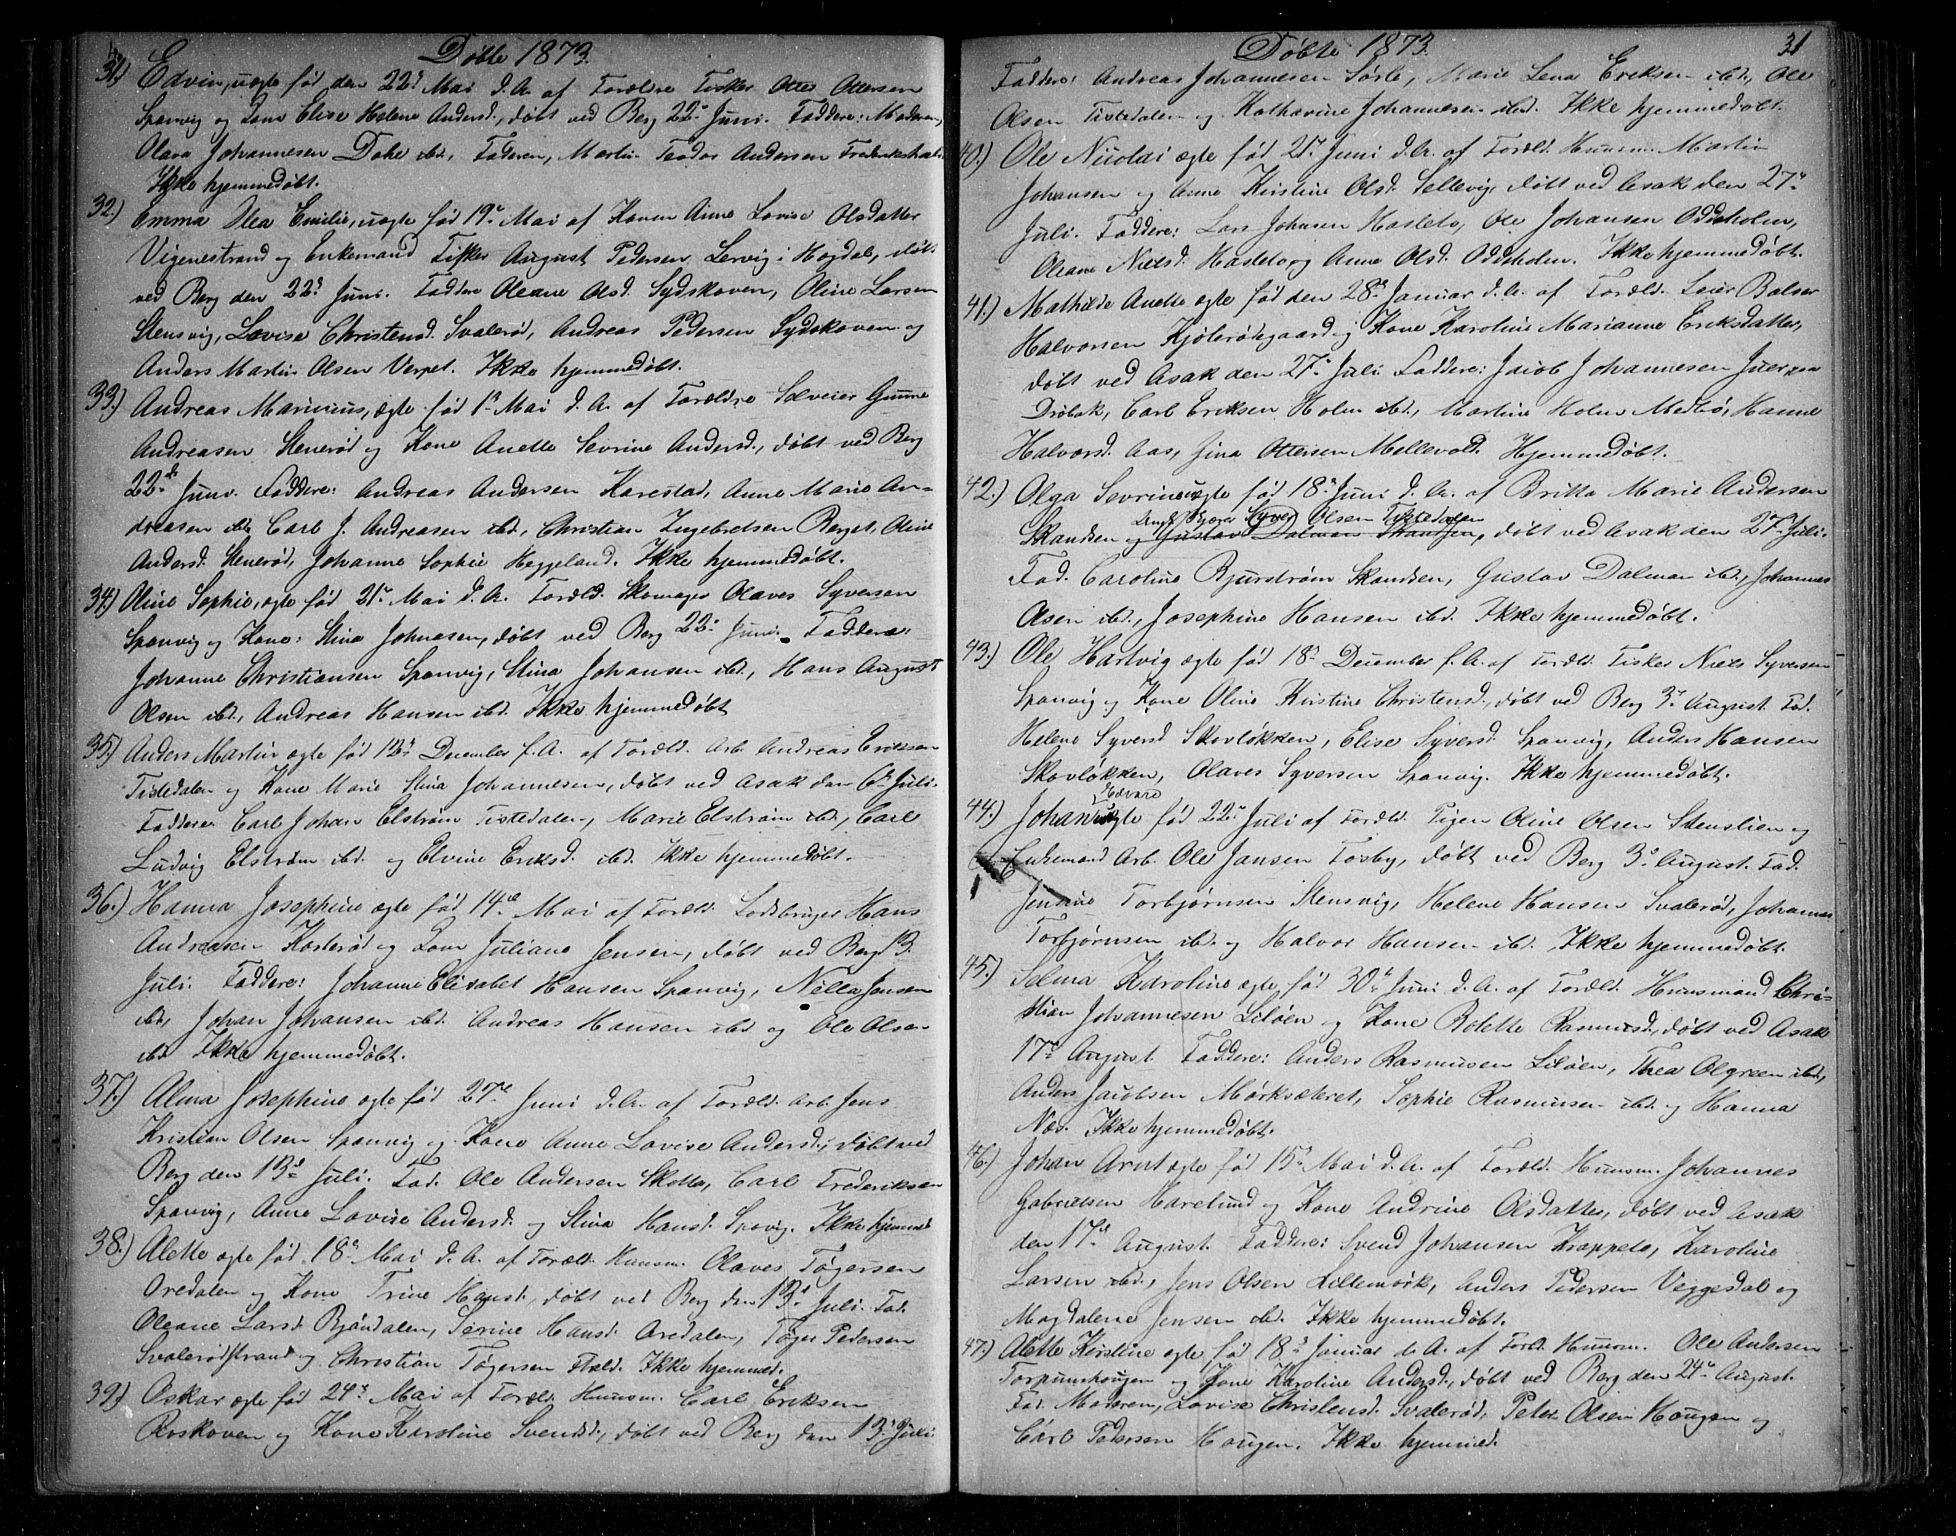 Døbte 1873.
31.) Edvin, uægte født den 22de Mai d.A. af Forældre Fisker Otter Ottersen
Sponvig og Kone Elise Helene Andersd., døbt ved Berg 22de Juni. Faddere: Moderen,
Olava Johannesen Dahe ibd, Faderen, Martin Teodor Andersen Frederikshald.
Ikke hjemmedøbt.
32.) Emma Olea Emilie, uægte født 19de Mai af Karen Anne Lovise Olsdatter
Vigenestrand og Enkemand Fisker August Pedersen Lervig i Hogdal, døbt
ved Berg den 22de Juni. Faddere Oleane Olsd. Sydskoven, Oline Larsen
Stensvig, Lovise Christensd. Svalerød, Andreas Pedersen Sydskoven og
Anders Martin Olsen Verpet. Ikke hjemmedøbt.
33.) Andreas Marinius, ægte født 1ste Mai d.A. af Forældre Selveier Gunne
Andreasen Stenerød og Kone Anette Sevrine Andersd., døbt ved Berg
22de Juni. Faddere: Andreas Andersen Karestad, Anne Marie An-
dreasen ibd, Carl J. Andreasen ibd., Christian Ingebretsen Berget, Oline
Andersd. Stenerød, Johanne Sophie Heggeland. Ikke hjemmedøbt.
34.) Oline Sophie, ægte født 21de Mai d.A. Foræld. Skomager Olaves Syversen
Sponvig og Kone: Stina Johnasen, døbt ved Berg 22de Juni. Faddere:
Johanne Christiansen Sponvig, Stina Johansen ibd., Hans August
Olsen ibd., Andreas Hansen ibd. Ikke hjemmedøbt
35.) Anders Martin ægte født 12te December f.A. af Foræld. Arb. Andreas Eriksen
Tistedalen og Kone Marie Stina Johannesen, døbt ved Asak den 6te Juli.
Faddere Carl Johan Elstrøm Tistedalen, Marie Elstrøm ibd., Carl
Ludvig Elstrøm ibd. og Elvine Eriksd. ibd. Ikke hjemmedøbt.
36.) Hanna Josephine ægte født 14de Mai af Foræld. Lodsbruger Hans
Andreasen Kosterød og Kone Juliane Jensen, døbt ved Berg 13.
Juli. Faddere: Johanne Elisabet Hansen Sponvig, Nilla Jensen
ibd, Johan Johansen ibd. Andreas Hansen ibd og Ole Olsen
ibd Ikke hjemmedøbt.
37.) Alma Josephine ægte født 27de Juni d.A. af Foræld. Arb. Jens
Kristian Olsen Sponvig og Kone Anne Lovise Andersd., døbt ved
Berg den 13de Juli. Fad. Ole Andersen Skotte, Carl Frederiksen
Sponvig, Anne Lovise Andersd. og Stina Hansd. Spovig. Ikke hjemmed
38.) Alette ægte født 18de Mai d.A. af Foræld. Huusm. Olaves Tøgersen
Oredalen og Kone Trine Hansd., døbt ved Berg den 13de Juli. Fad.
Oleane Larsd. Bjøndalen, Serine Hansd. Oredalen, Tøger Pedersen
Svalerødstrand og Christian Tøgersen Ibd. Ikke hjemmed.
39.) Oskar ægte født 24de Mai af Foræld. Huusm. Carl Eriksen
Roskoven og Kone Karoline Svendsd., døbt ved Berg den 13de Juli.
Døbte 1873. 31
Faddere: Andreas Johannesen Sørli, Marie Lena Eriksen ibd, Ole
Olsen Tistedalen og Katharine Johannesen ibd. Ikke hjemmedøbt.
40.) Ole Nicolai ægte født 21de Juni d.A. af Foræld. Huusm. Martin
Johansen og Anne Kirstine Olsd. Sellevig, døbt ved Asak den 27de
Juli. Faddere: Lars Johansen Hasleto, Ole Johansen Oddeholen,
Oleane Nielsd. Hasleto og Anne Olsd. Oddeholen. Ikke hjemmedøbt.
41.) Mathilde Anette ægte født den 28de Januar d.A. af Foræld. Leier Balser
Halvorsen Kjølerødegaard og Kone Karoline Marianne Eriksdatter,
døbt ved Asak den 27de Juli Faddere: Jacob Johannesen
Drøbak, Carl Eriksen Holm ibd., Martine Holm Medbø, Hanne
Halvorsd. Aas, Jina Ottersen Mellevold. Hjemmedøbt.
42.) Olga Sevrine uægte født 18de Juni d.A. af Britta Marie Andersen
Ungk. Syver Olsen Tistedalen
Skandsen og Gustav Dalman Skandsen, døbt ved Asak den 27de Juli.
Fad. Caroline Bjurstrøm Skandsen, Gustav Dalman ibd., Johannes
Olsen ibd., Josephine Hansen ibd. Ikke hjemmedøbt.
43.) Ole Hartvig ægte født 18de December f.A. af Foræld. Fisker Niels Syversen
Sponvig og Kone Oline Kirstine Christensd., døbt ved Berg 3de August. Fad.
Helene Syversd Skovløkken, Elise Syversd. Sponvig, Anders Hansen
Skovløkken, Olaves Syversen Sponvig. Ikke hjemmedøbt.
Edvard
44.) Johan uægte født 22de Juli af Foræld. Pigen Oline Olsen Stenslien og
Enkemand Arb. Ole Jansen Tosby, døbt ved Berg 3de August. Fad.
Jensine Torbjørnsen Stensvig, Helene Hansen Svalerød, Johannes
Torbjørnsen ibd. og Halvor Hansen ibd. Ikke hjemmedøbt.
45.) Selma Karoline ægte, født 30te Juni d.A. af Foræld. Huusmand Chri-
stian Johannesen Liløen og Kone Bolette Rasmusd., døbt ved Asak
17de August. Faddere: Anders Rasmusen Liløen, Thea Olgreen ibd.,
Anders Jacobsen Mørksæteret, Sophie Rasmusen ibd. og Hanna
Næs. Ikke hjemmedøbt.
46.) Johan Arnt ægte født 15de Mai d.A. af Foræld. Huusm. Johannes
Gabrielsen Harelund og Kone Andrine Olsdatter, døbt ved Asak
den 17de August. Faddere: Svend Johansen Knappeto, Karoline
Larsen ibd., Jens Olsen Lillemørk, Anders Pedersen Veggesdal og
Magdalene Jensen ibd. Ikke hjemmedøbt.
47.) Alette Kirstine ægte født 18de Januar d.A. af Foræld. Huusm. Ole Andersen
Torpumhougen og Kone Karoline Andersd., døbt ved Berg den 24de August.
Fad. Moderen, Lovise Christensd. Svalerød, Peter Olsen Hougen og
Carl Pedersen Hougen. Ikke hjemmed.